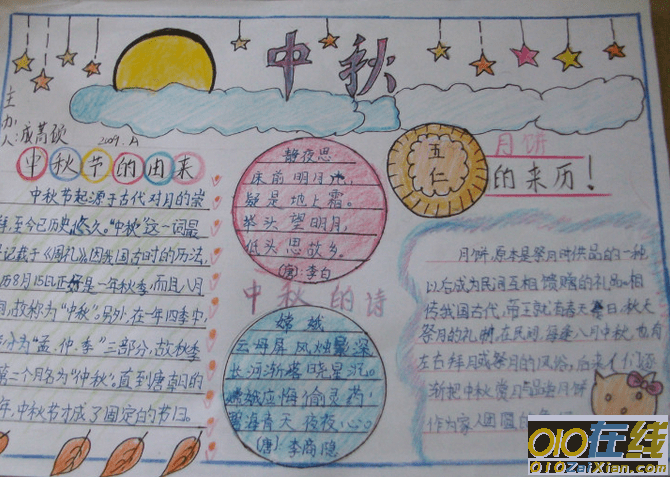 中秋
主办
人:成
2009.
中秋节的由来
中秋节起源于古代对月的崇
拜,至今已历史悠久。“中秋”这一词最
记载于《周礼》,因我国古时的历法,
历8月15日正好是一年秋季,而且八月
间,故称为“中秋”。另外,在一年四季中
分为“孟、仲、季”三部分,故秋季
第二个月名为“仲秋”,直到唐朝的
年,中秋节才成了固定的节日。
静夜思
床前明月光,
疑是地上霜。
举头望明月,
低头思故乡。
(唐)李白
中秋的诗
嫦娥
云母屏风烛影深,
长河渐落晓星沉。
嫦娥应悔偷灵药,
碧海青天夜夜心。
(唐)李商隐
五
仁
月饼
的来历!
月饼,原本是祭月时供品的一种
以后成为民间互相馈赠的礼品。相
传我国古代,帝王就有春天祭日,秋天
祭月的礼制,在民间,每逢八月中秋,也有
左右拜月或祭月的风俗,后来人们逐
渐把中秋赏月与品尝月饼
作为家人团圆的
010在线
010ZaiXian.com